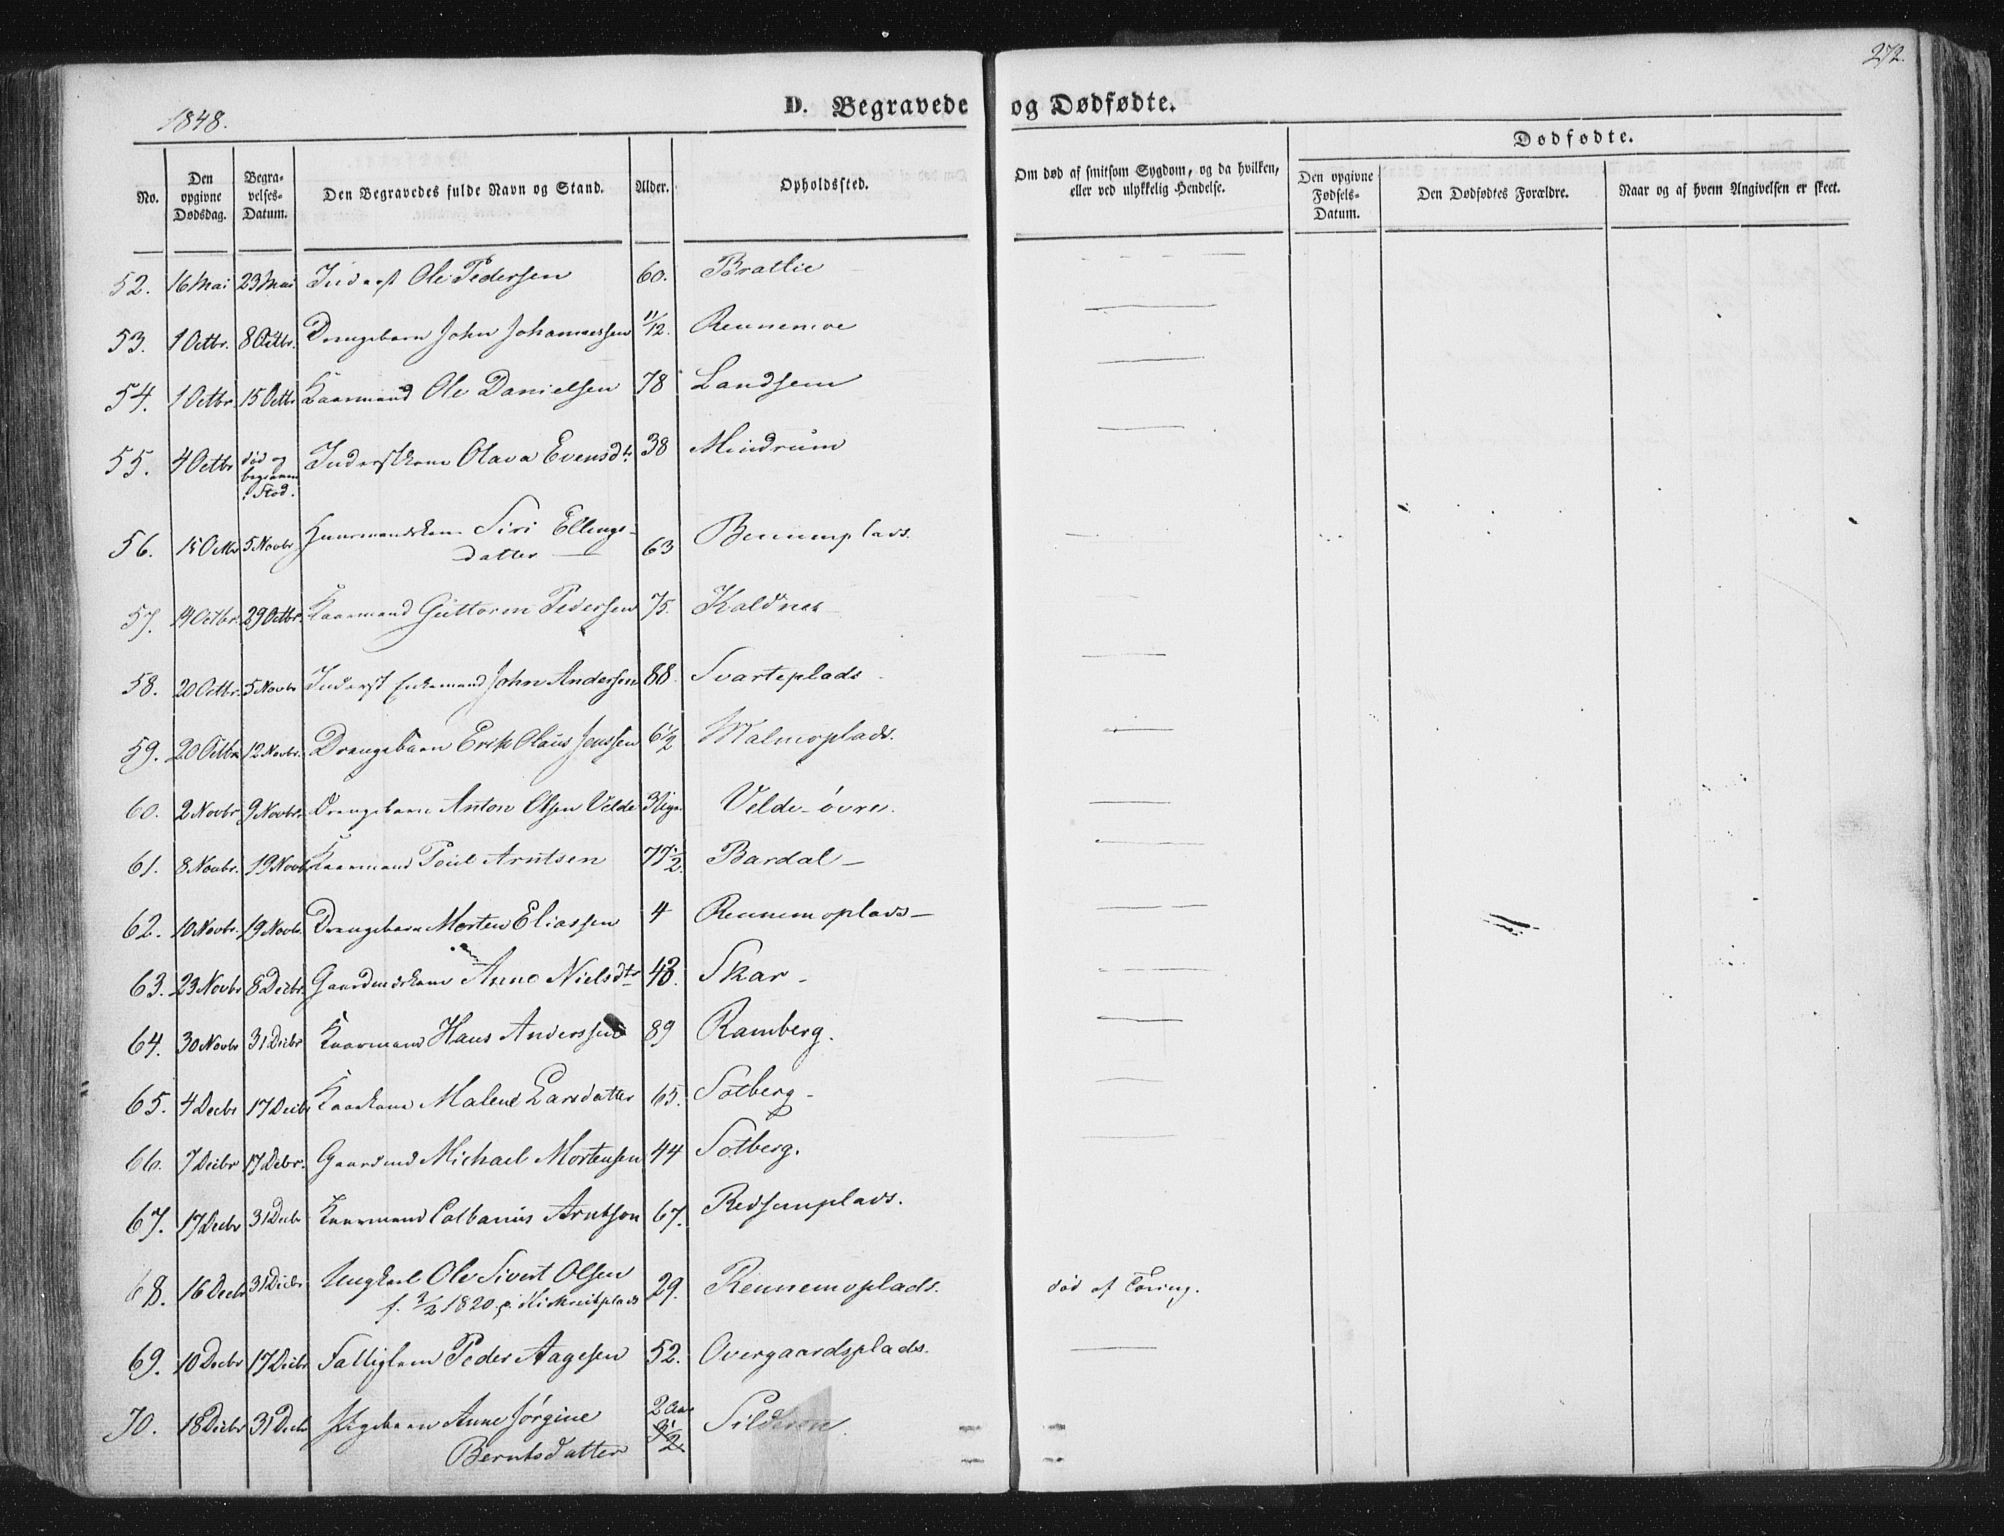 272.
1848.
D. Begravede og Dødfødte.
No.
Den opgivne Dødsdag.
Begravelses-Datum.
Den Begravedes fulde Navn og Stand.
Alder.
Opholdssted.
Om død af smitsom Sygdom, og da hvilken, eller ved ulykkelig Hendelse.
Dødfødte.
Den opgivne Fødsels-Datum.
Den Dødfødtes Forældre.
Naar og af hvem Angivelsen er skeet.
52. 16 Mai 23 Mai Inderst Ole Pedersen 60. Bratlie
53. 1 Octbr. 8 Octbr. Drengebarn John Johannessen 11/12. Rennemoe
54. 1 Octbr. 15 Octbr Kaarmand Ole Danielsen 78 Landsem
55. 4 Octbr død og begraven i Stod. Inderstkone Olava Evensdt. 38 Mindrum
56. 15 Octbr 5 Novbr Huusmandskone Siri Ellings-
datter 63 Bennemplads.
57. 14 Octbr. 29 Octbr. Kaarmand Guttorm Pedersen 75. Koldnes
58. 20 Octbr. 5 Novbr Inderst Enkemand John Andersen 88. Svarteplads
59. 20 Octbr 12 Novbr. Drengebarn Erik Olaus Jenssen 6 1/2 Malmoplads.
60. 2 Novbr 9 Novbr. Drengebarn Anton Olsen Velde 3 Ugr Velde-övre.
61. 8 Novbr. 19 Novbr Kaarmand Poul Arntsen 77 1/2. Bardal
62. 10 Novbr. 19 Novbr. Drengebarn Morten Eliassen 4 Rennemoplads
63. 23 Novbr 8 Decbr. Gaardmdskone Anne Nielsdtr 48. Skar
64. 30 Novbr 31 Decbr Kaarmand Hans Anderssen 89 Ramberg.
65. 4 Decbr 17 Decbr Kaarkone Malene Larsdatter 65. Solberg
66. 7 Decbr 17 Decbr. Gaardmd Michael Mortensen 44 Solberg.
67. 17 Decbr 31 Decbr Kaarmand Colbanus Arntson 67. Redsemplads.
68. 16 Decbr 31 Decbr Ungkarl Ole Sivert Olsen 29. Rennemoplads. død af Tæring.
f. 3/2 1820
69. 10 Decbr 17 Decbr Fattiglem Peder Aagesen 52. Overgaardsplads.
70. 18 Decbr 31 Decbr Pigebarn Anne Jørgine 2 Aar
Berntsdatter 3 1/2